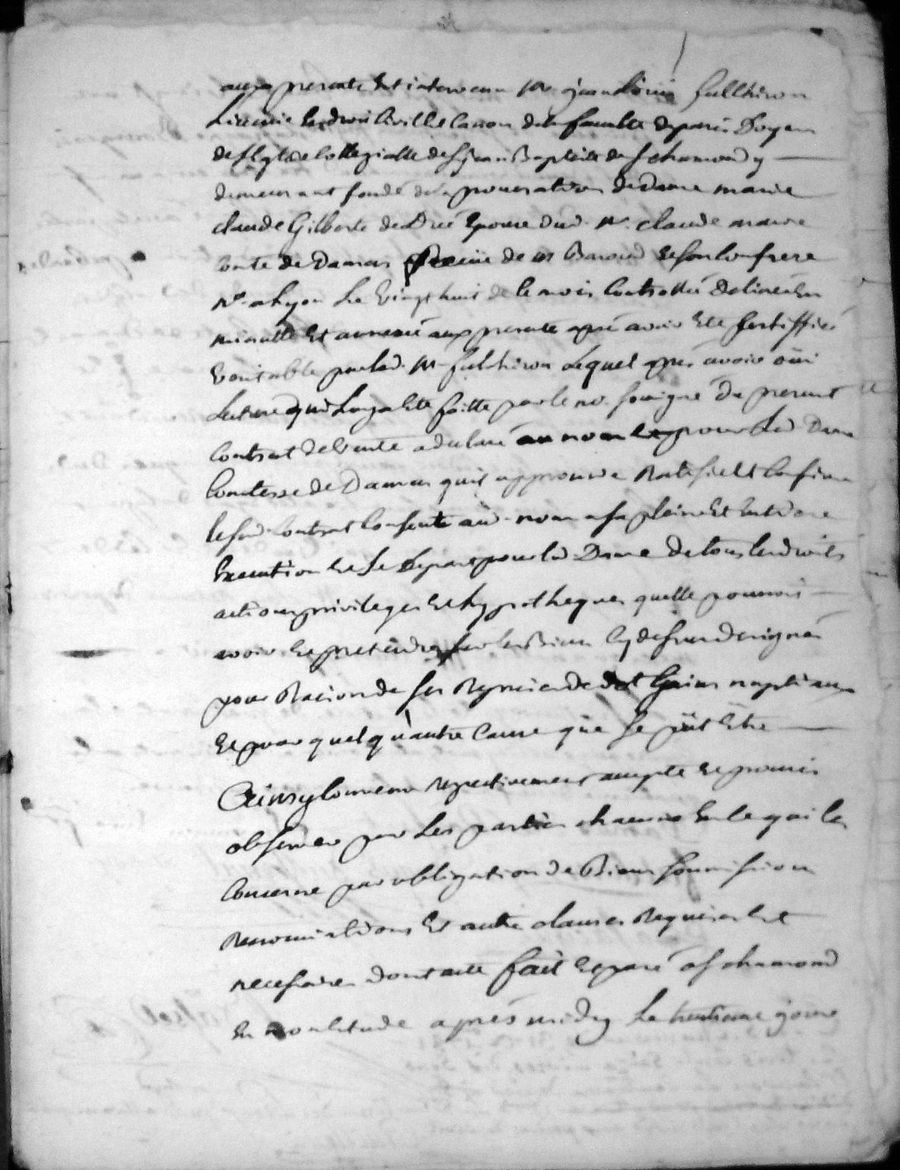 aux presentes Est intervenu Mr. jean Louis fulchiron
Licencié Es droit Civil et Canon de la faculté de paris Doyen
de l'Eglise Collegialle de St jean Baptiste de St chamond y
demeurant fondé de la procuration de Dame marie
claude Gilberte de Drée Epouse dud. Mr. claude marie
Comte de Damas de me Baroud Et son Confrere
Nres. a Lyon Le vingt huit de Ce mois Controllée Delivrée En
minutte Et annexée aux presentes après avoir Eté Certiffiée
veritable par led. Mr fulchiron Lequel après avoir oüi
Lecture qui Luy a Eté faitte par le nre. soussigné du present
Contrat de vente a declaré au nom Et pour Lad Dame
Comtesse de Damas qu'il approuve Ratiffie Et Confirme
led. Contrat Consent aud. nom a sa pleine Et Entiere
Execution Et Se Depart pour lad Dame de tous les droits
actions privileges Et hypotheques quelle pourroit
avoir Et pretendre sur les Biens Cy dessus designés
pour Raison de ses Reprises de dot Gains nuptiaux
Et pour quelqu'autre Cause que Ce püt Etre
Ainsy Convenu Respectivement accepté Et promis
observer par Les parties chacune En Ce qui les
Concerne par obligation de Biens soumissions
Renonciations Et autres clauses Requises Et
necessaires dont acte fait Et passé a St chamond
En Etude après midy Le trentieme jour